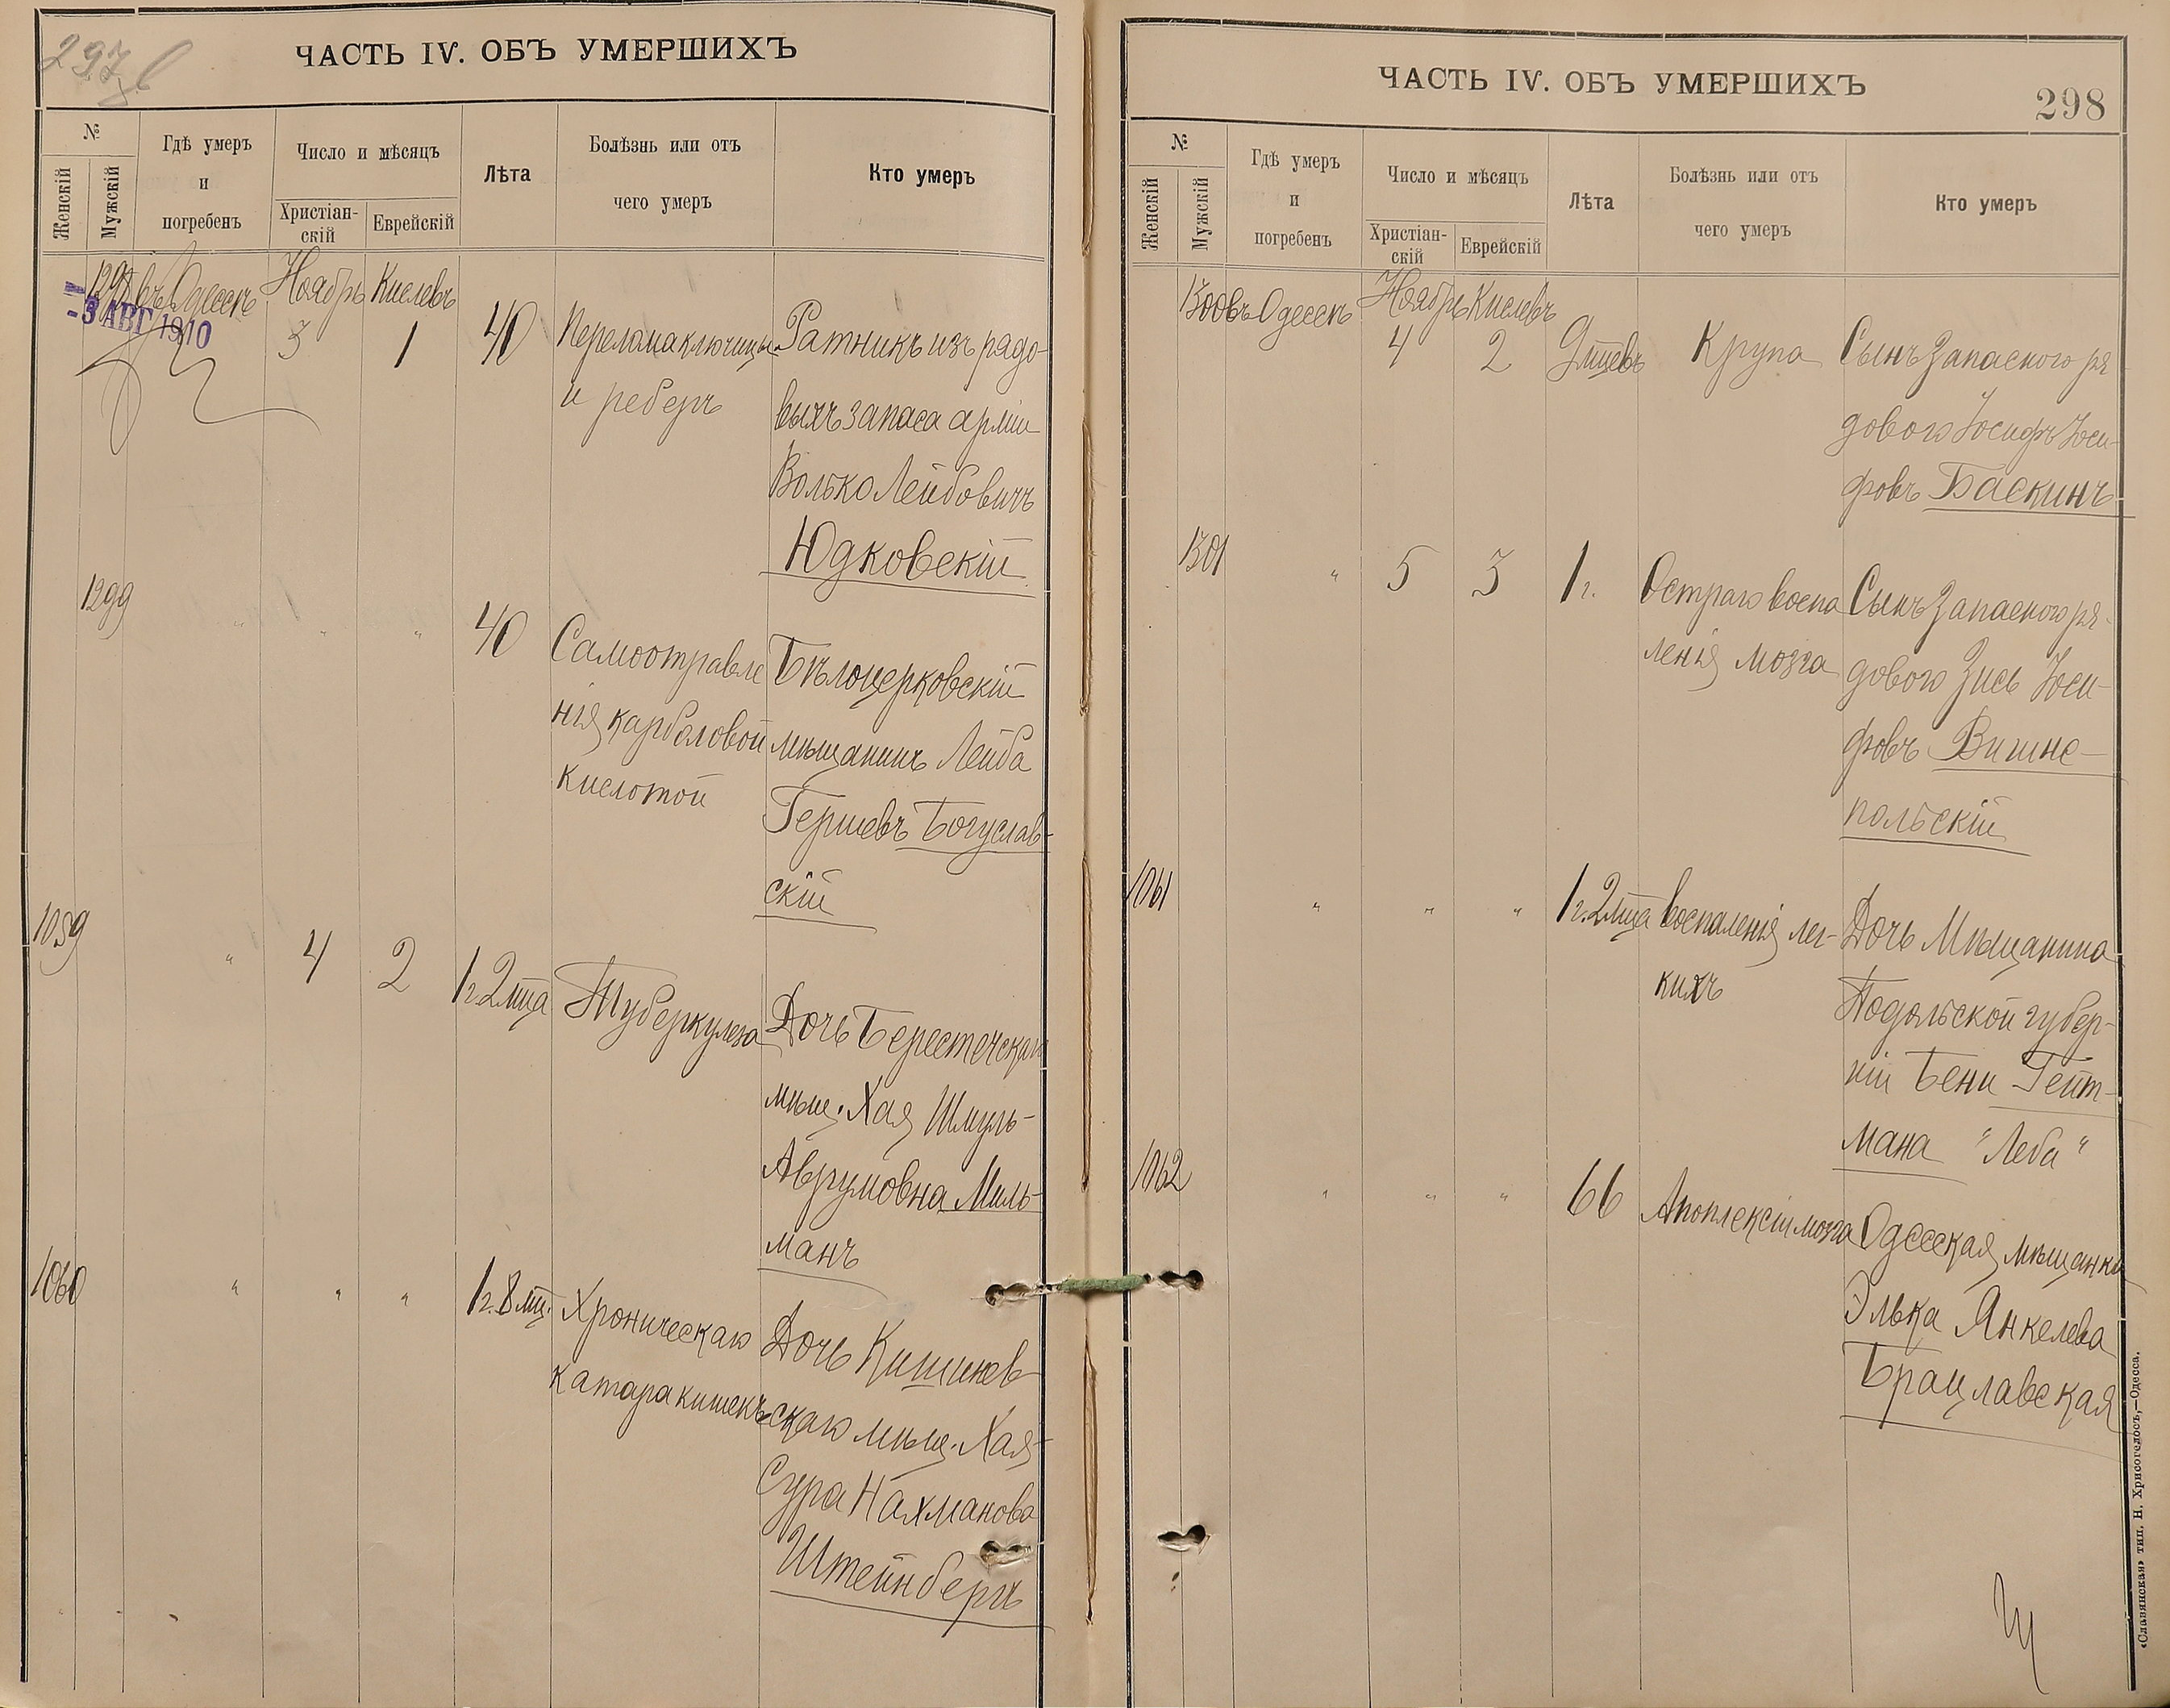 297 в
ЧАСТЬ IV. ОБЪ УМЕРШИХЪ
№
Женскій
Мужскій
Гдѣ умеръ
и
погребенъ
Число и мѣсяцъ
Христіан-
скій
Еврейскій
Лѣта
Болѣзнь или отъ
чего умеръ
Кто умеръ
1298 въ Одессѣ Ноябрь Кислевъ
-3 АВГ 1910
3 1 40 Перелома ключицы Ратникъ изъ рядо-
и реберъ выхъ запаса арміи
Волько Лейбовичъ
Юдковскій
1299 " " " 40 Самоотравле Бѣлоцерковскій
нія карболовой мѣщанинъ Лейба
кислотой Гершевъ Богуслав-
скій
1059 " 4 2 1 г. 2 мца Туберкулеза Дочь Берестечскаго
мѣщ. Хая Шмуль-
Аврумовна Миль-
манъ
1060 " " " 1 г. 8 мц. Хроническаго Дочь Кишинев
катара кишекъ скаго мѣщ. Хая-
Сура Нахманова
Штейнбергъ
ЧАСТЬ IV. ОБЪ УМЕРШИХЪ
298
№
Женскій
Мужскій
Гдѣ умеръ
и
погребенъ
Число и мѣсяцъ
Христіан-
скій
Еврейскій
Лѣта
Болѣзнь или отъ
чего умеръ
Кто умеръ
1300 въ Одессѣ Ноябрь Кислевъ
4 2 9 мцевъ Крупа Сынъ запасного ря
дового Іосифъ Іоси-
фовъ Баскинъ
1301 " 5 3 1 г. Остраго воспа Сынъ запасного ря-
ленія мозга дового Зись Іоси-
фовъ Вишне-
польскій
1061 " " " 1 г. 2 мца воспаленія лег- Дочь Мѣщанина
кихъ Подольской губер-
ніи Бени Гейт-
мана "Леба"
1062 " " " 66 Апоплексіи мозга Одесская мѣщанка
Элька Янкелева
Брацлавская
«Славянская» тип. Н. Хрисогелосъ,—Одесса.